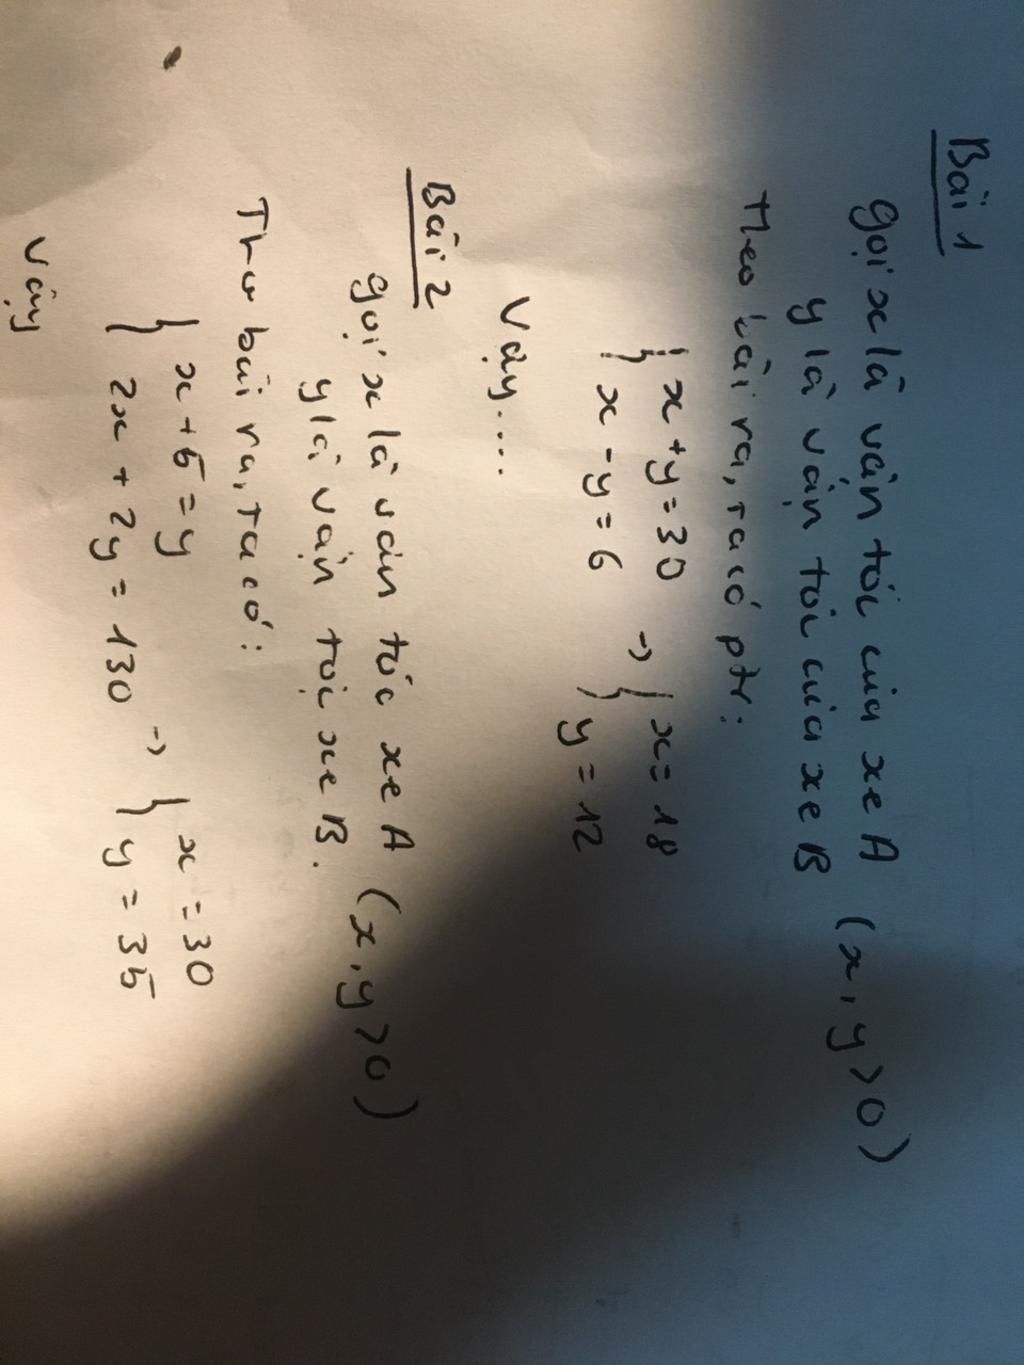 Bài 1
gọi x là vận tốc của xe A (x, y > 0)
y là vận tốc của xe B
Theo bài ra, ta có ptr:
{ x + y = 30
x - y = 6 → { x = 18
y = 12
Vậy....
Bài 2
gọi x là vận tốc xe A (x, y > 0)
y là vận tốc xe B.
Theo bài ra, ta có:
{ x + 5 = y
2x + 2y = 130 → { x = 30
y = 35
Vậy